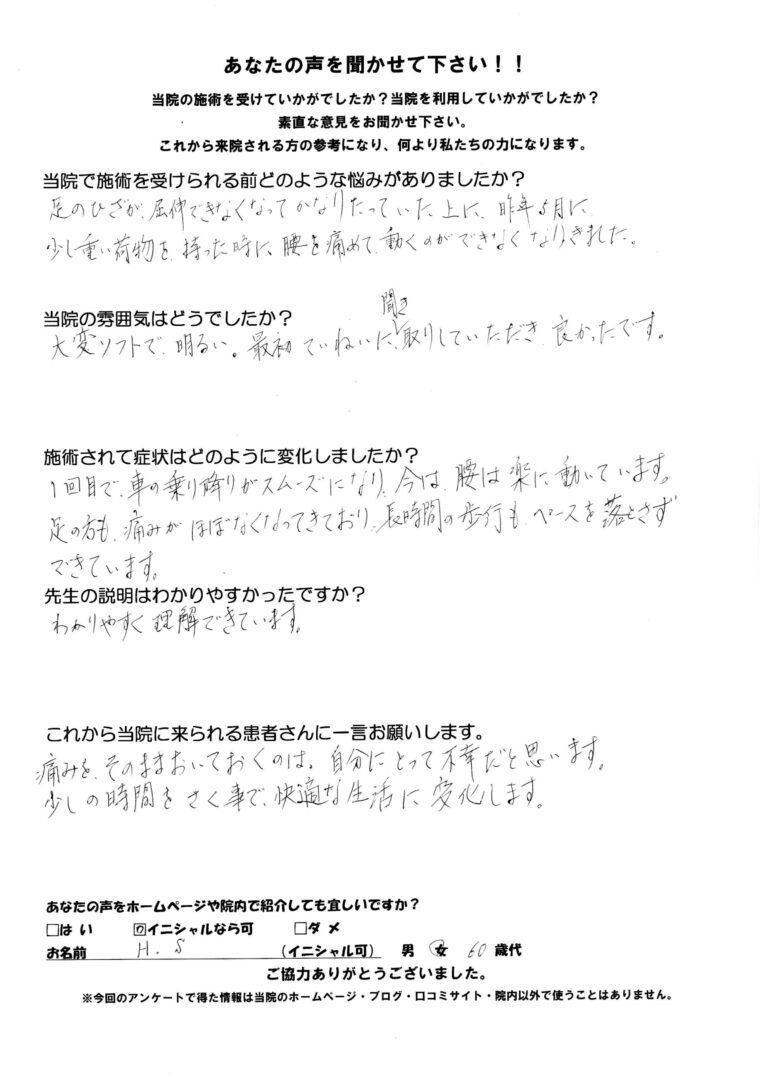 あなたの声を聞かせて下さい！！
当院の施術を受けていかがでしたか？当院を利用していかがでしたか？
素直な意見をお聞かせ下さい。
これから来院される方の参考になり、何より私たちの力になります。
当院で施術を受けられる前どのような悩みがありましたか？
足のひざが、屈伸できなくなってかなりたっていた上に、昨年5月に
少し重い荷物を持った時に、腰を痛めて、動くのができなくなりきました。
当院の雰囲気はどうでしたか？
大変ソフトで、明るい。最初ていねいに、聞き取りしていただき、良かったです。
施術されて症状はどのように変化しましたか？
1回目で、車の乗り降りがスムーズになり、今は、腰は楽に動いています。
足の方も、痛みがほぼなくなってきており、長時間の歩行も、ペースを落とさず
できています。
先生の説明はわかりやすかったですか？
わかりやすく理解できています。
これから当院に来られる患者さんに一言お願いします。
痛みを、そのままおいておくのは、自分にとって不幸だと思います。
少しの時間をさく事で、快適な生活に変化します。
あなたの声をホームページや院内で紹介しても宜しいですか？
□はい ☑イニシャルなら可 □ダメ
お名前 H.S （イニシャル可） 男 女 60 歳代
ご協力ありがとうございました。
※今回のアンケートで得た情報は当院のホームページ・ブログ・口コミサイト・院内以外で使うことはありません。